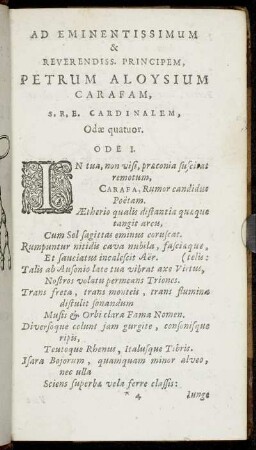 AD EMINENTISSIMUM
&
REVERENDISS. PRINCIPEM,
PETRUM ALOYSIUM
CARAFAM,
S. R. E. CARDINALEM,
Odæ quatuor.
ODE I.
IN tua, non visi, præconia suscitat
remotum,
CARAFA, Rumor candidus
Poëtam.
Ætherio qualis distantia quæque
tangit arcu,
Cum Sol sagittas eminus coruscat.
Rumpuntur nitidis cava nubila, fasciæque,
Et sauciatus incalescit Aër. (telis:
Talis ab Ausonio late tua vibrat axe Virtus,
Nostros volatu permeans Triones.
Trans freta, trans monteis, trans flumina
distulit sonandum
Musis & Orbi clara Fama Nomen.
Diversoque colunt jam gurgite, consonisque
ripis,
Teutoque Rhenus, Italusque Tibris.
Isara Bojorum, quamquam minor alveo,
nec ulla
Sciens superba vela ferre classis:
* 4 Iunge